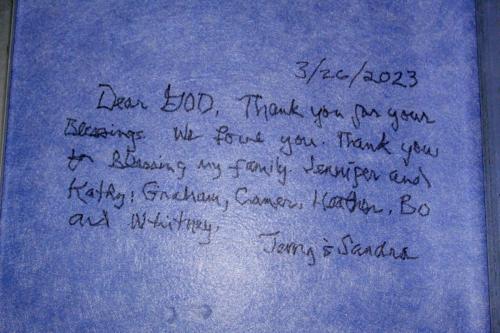 3/26/2023
Dear GOD, Thank you for your
Blessings. We love you. Thank you
for Blessing my family. Jennifer and
Kathy, Graham, Cramer, Heather, Bo
and Whitney.
Jerry & Sandra